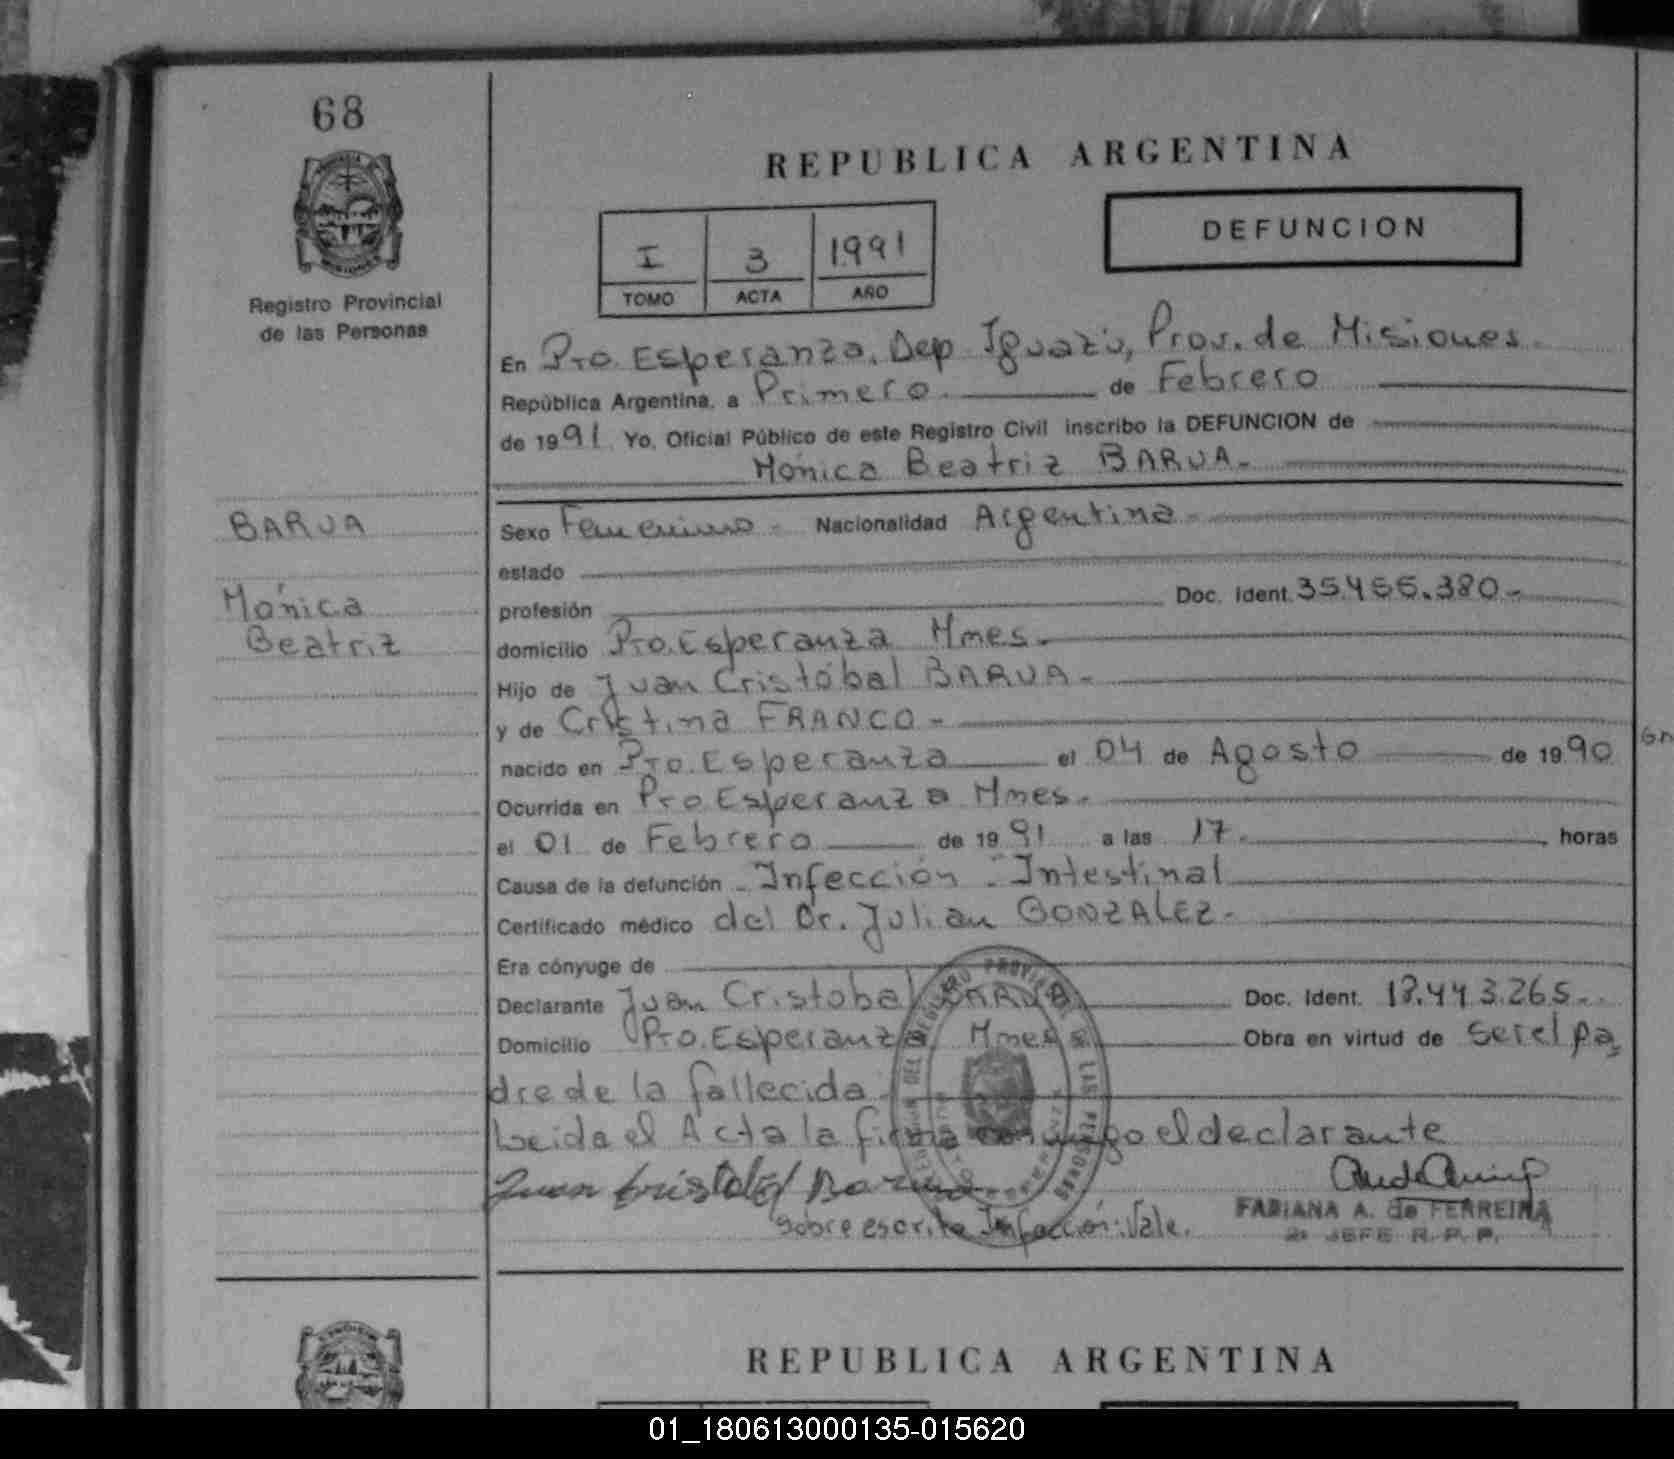 68
Registro Provincial
de las Personas
REPUBLICA ARGENTINA
DEFUNCION
I 3 1991
TOMO ACTA AÑO
En Pto. Esperanza, Dep. Iguazú, Prov. de Misiones.
República Argentina, a Primero de Febrero
de 1991 Yo, Oficial Público de este Registro Civil inscribo la DEFUNCION de
Mónica Beatriz BARUA.
BARUA
Mónica
Beatriz
Sexo Femenino - Nacionalidad Argentina
estado
profesión Doc. Ident. 35.455.380
domicilio Pto. Esperanza Mnes.
Hijo de Juan Cristóbal BARUA
y de Cristina FRANCO
nacido en Pto. Esperanza el 04 de Agosto de 1990
Ocurrida en Pto. Esperanza Mnes.
el 01 de Febrero de 1991 a las 17. horas
Causa de la defunción Infección Intestinal
Certificado médico del Dr. Julian GONZALEZ
Era cónyuge de
Declarante Juan Cristobal BARUA Doc. Ident. 18.443.265
Domicilio Pto. Esperanza Mnes Obra en virtud de ser el pa
dre de la fallecida
Leida el Acta la firma conmigo el declarante
Juan Cristobal Barua
Sobre escrito Infección: Vale.
FABIANA A. de FERREIRA
JEFE R. P. P.
REPUBLICA ARGENTINA
01_180613000135-015620